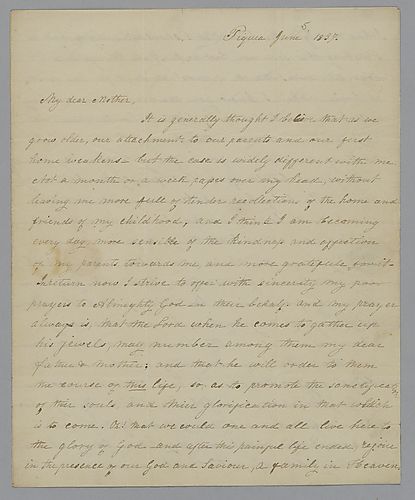 Piqua June 5 1837.
My dear Mother,
It is generally thought I believe that as we
grow older, our attachments to our parents and our first
home weakens – but the case is widely different with me
Not a month or a week passes over my head, without
leaving me more full of tender recollection of the home and
friends of my childhood, and I think I am becoming
every day more sensible of the kindness and affection
of my parents towards me and more grateful for it –
In return now I strive to offer with sincerity my poor
prayers to Almighty God in their behalf – and my prayer
always is that the Lord when he comes to gather up
his jewels, may number among them my dear
father & mother; and that he will order to them
the course of this life, so, as to promote the sanctification
of their souls, and their glorification in that which
is to come. Oh! that we could one and all live here to
the glory of God – and after this painful life ended, rejoice
in the presence of our God and Saviour, a family in Heaven,